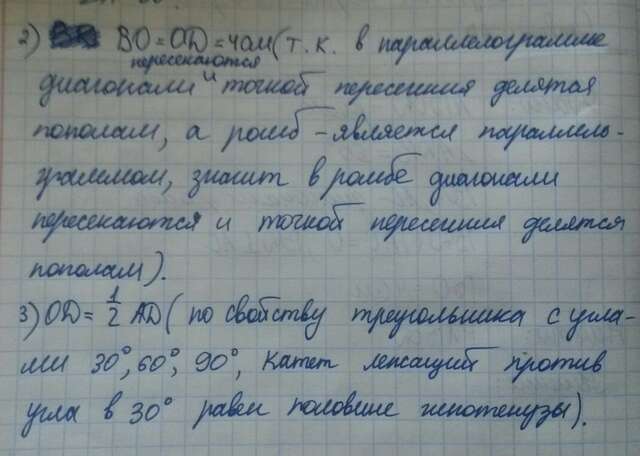 2) BO=OD=4см(т.к. в параллелограмме
пересекаются
диагонали и точкой пересения делятся
пополам, а ромб - является параллель-
граммом, значит в ромбе диагонали
пересекаются и точкой пересения делятся
пополам).
3) OD= 1/2 AD ( по свойству треугольника с угла-
ми 30°, 60°, 90°, катет лежащий против
угла в 30° равен половине гипотенузы).